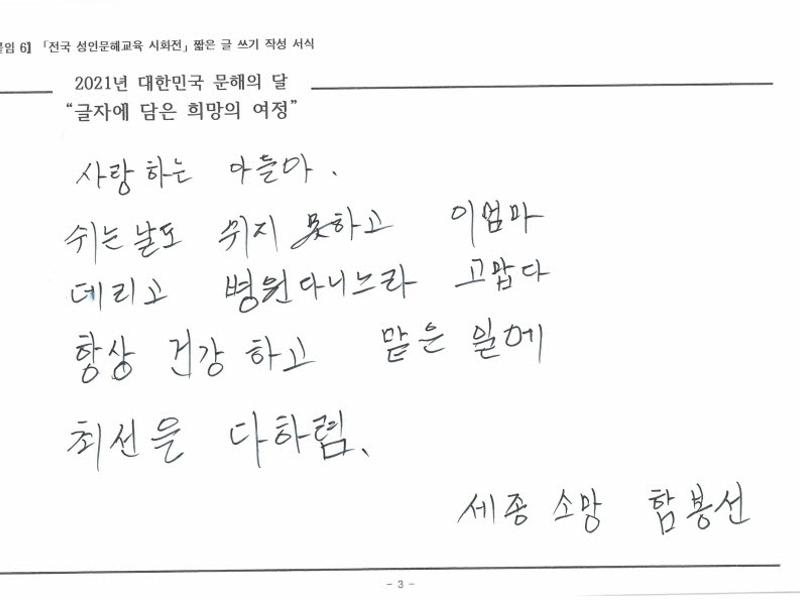 붙임 6】 「전국 성인문해교육 시화전」 짧은 글 쓰기 작성 서식
2021년 대한민국 문해의 달
“글자에 담은 희망의 여정”
사랑하는 아들아.
쉬는날도 쉬지 못하고 이엄마
데리고 병원다니느라 고맙다
항상 건강하고 맡은 일에
최선을 다하렴.
세종 소망 함봉선
- 3 -